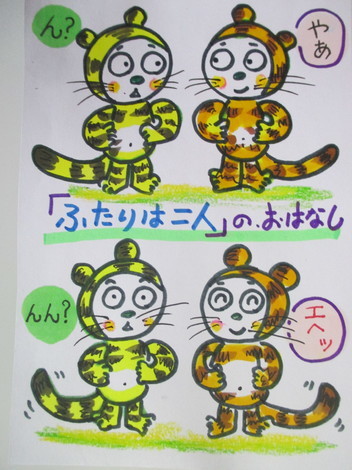 ん?
やあ
「ふたりは二人」の.おはなし
んん?
エヘッ